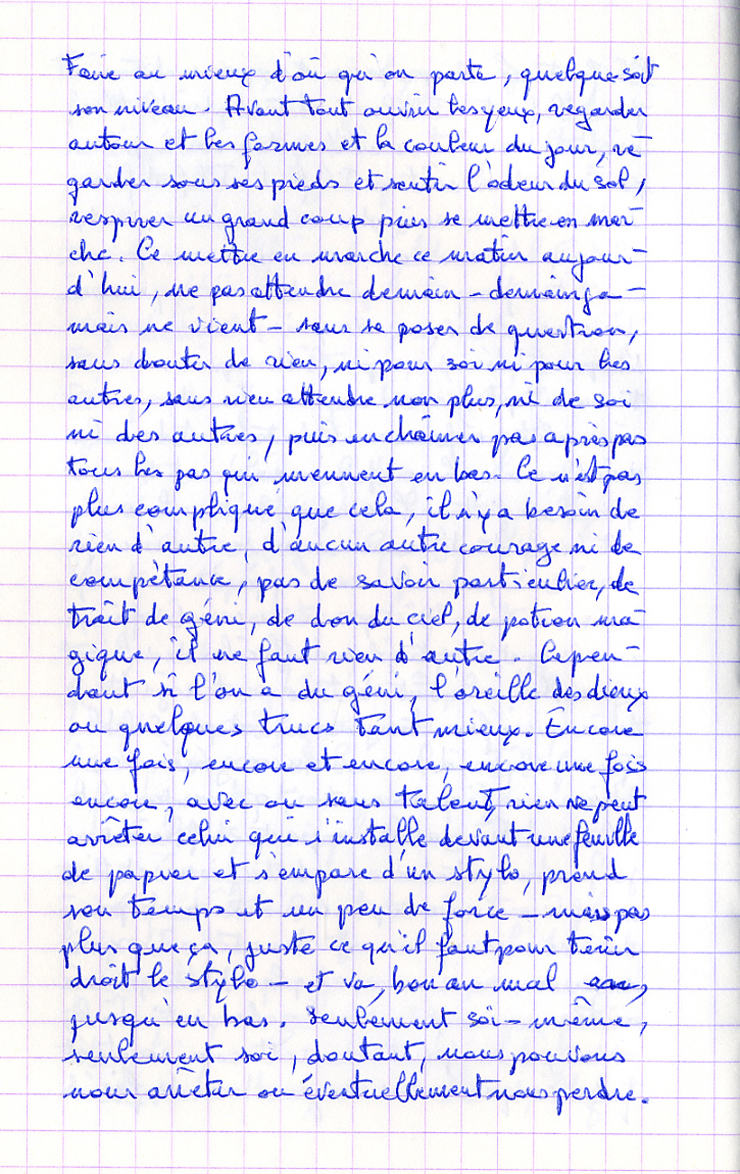 Faire au mieux d'où qu'on parte, quelque soit
son niveau. Avant tout ouvrir les yeux, regarder
autour et les formes et la couleur du jour, re-
garder sous ses pieds et sentir l'odeur du sol,
respirer un grand coup puis se mettre en mar-
che. Ce mettre en marche ce matin aujour-
d'hui, ne pas attendre demain - demain ja-
mais ne vient - sans se poser de question,
sans douter de rien, ni pour soi ni pour les
autres, sans rien attendre non plus, ni de soi
ni des autres, puis enchaîner pas après pas
tous les pas qui mennent en bas. Ce n'est pas
plus compliqué que cela, il n'y a besoin de
rien d'autre, d'aucun autre courage ni de
compétance, pas de savoir particulier, de
trait de géni, de don du ciel, de potion ma-
gique, il ne faut rien d'autre. Cepen-
dant si l'on a du géni, l'oreille des dieux
ou quelques trucs tant mieux. Encore
une fois, encore et encore, encore une fois
encore, avec ou sans talent, rien ne peut
arrêter celui qui s'installe devant une feuille
de papier et s'empare d'un stylo, prend
son temps et un peu de force - mais pas
plus que ça, juste ce qu'il faut pour tenir
droit le stylo - et va, bon an mal an,
jusqu'en bas. Seulement soi-même,
seulement soi, doutant, nous pouvons
nous arrêter ou éventuellement nous perdre.